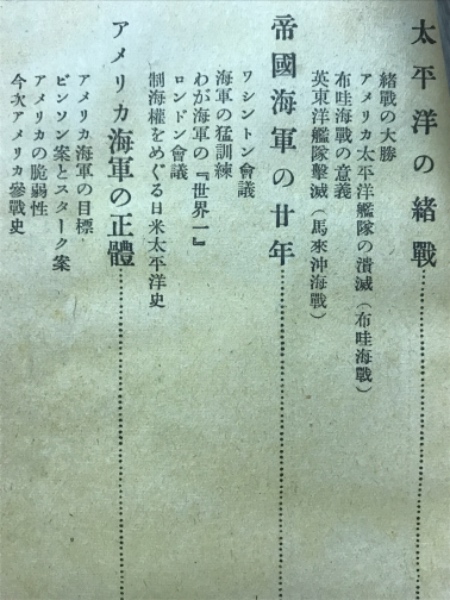 太平洋の緒戰
緒戰の大勝
アメリカ太平洋艦隊の潰滅(布哇海戰)
布哇海戰の意義
英東洋艦隊擊滅(馬來沖海戰)
帝國海軍の廿年
ワシントン會議
海軍の猛訓練
わが海軍の『世界一』
ロンドン會議
制海權をめぐる日米太平洋史
アメリカ海軍の正體
アメリカ海軍の目標
ビンソン案とスターク案
アメリカの脆弱性
今次アメリカ參戰史